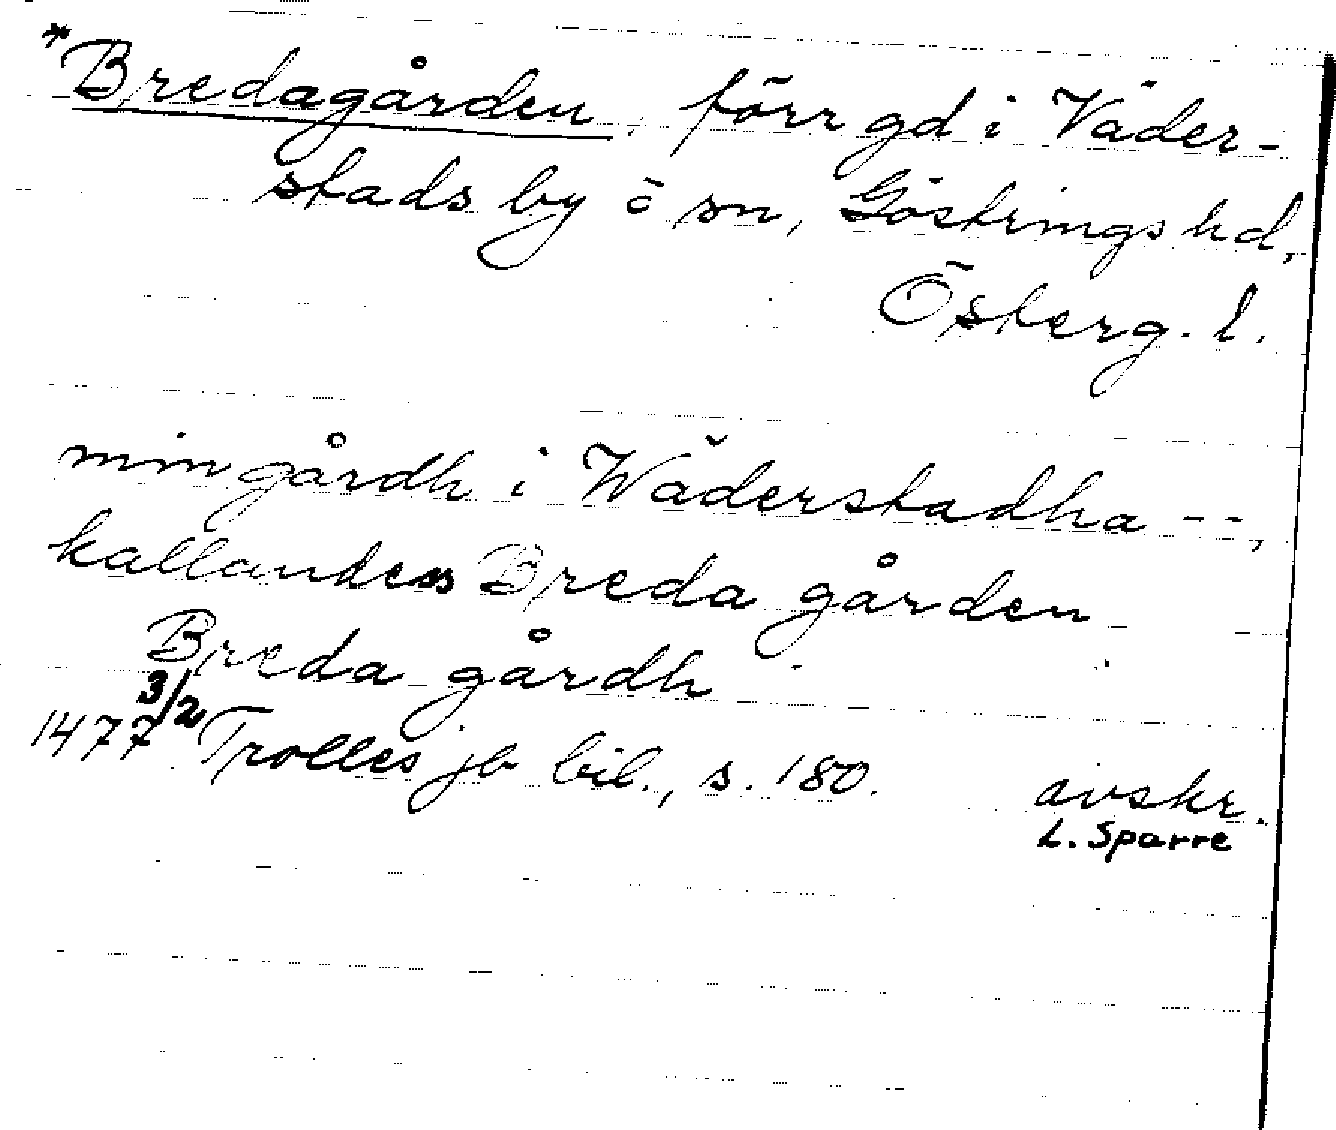 *Bredagården, förr gd i Väder-
stads by o sn, Göstrings hd,
Österg. l.
min gårdh i Wäderstadha --,
kallandes Breda gården
Breda gårdh
1477 3/2 Trolles jb bil., s. 180. avskr.
L. Sparre